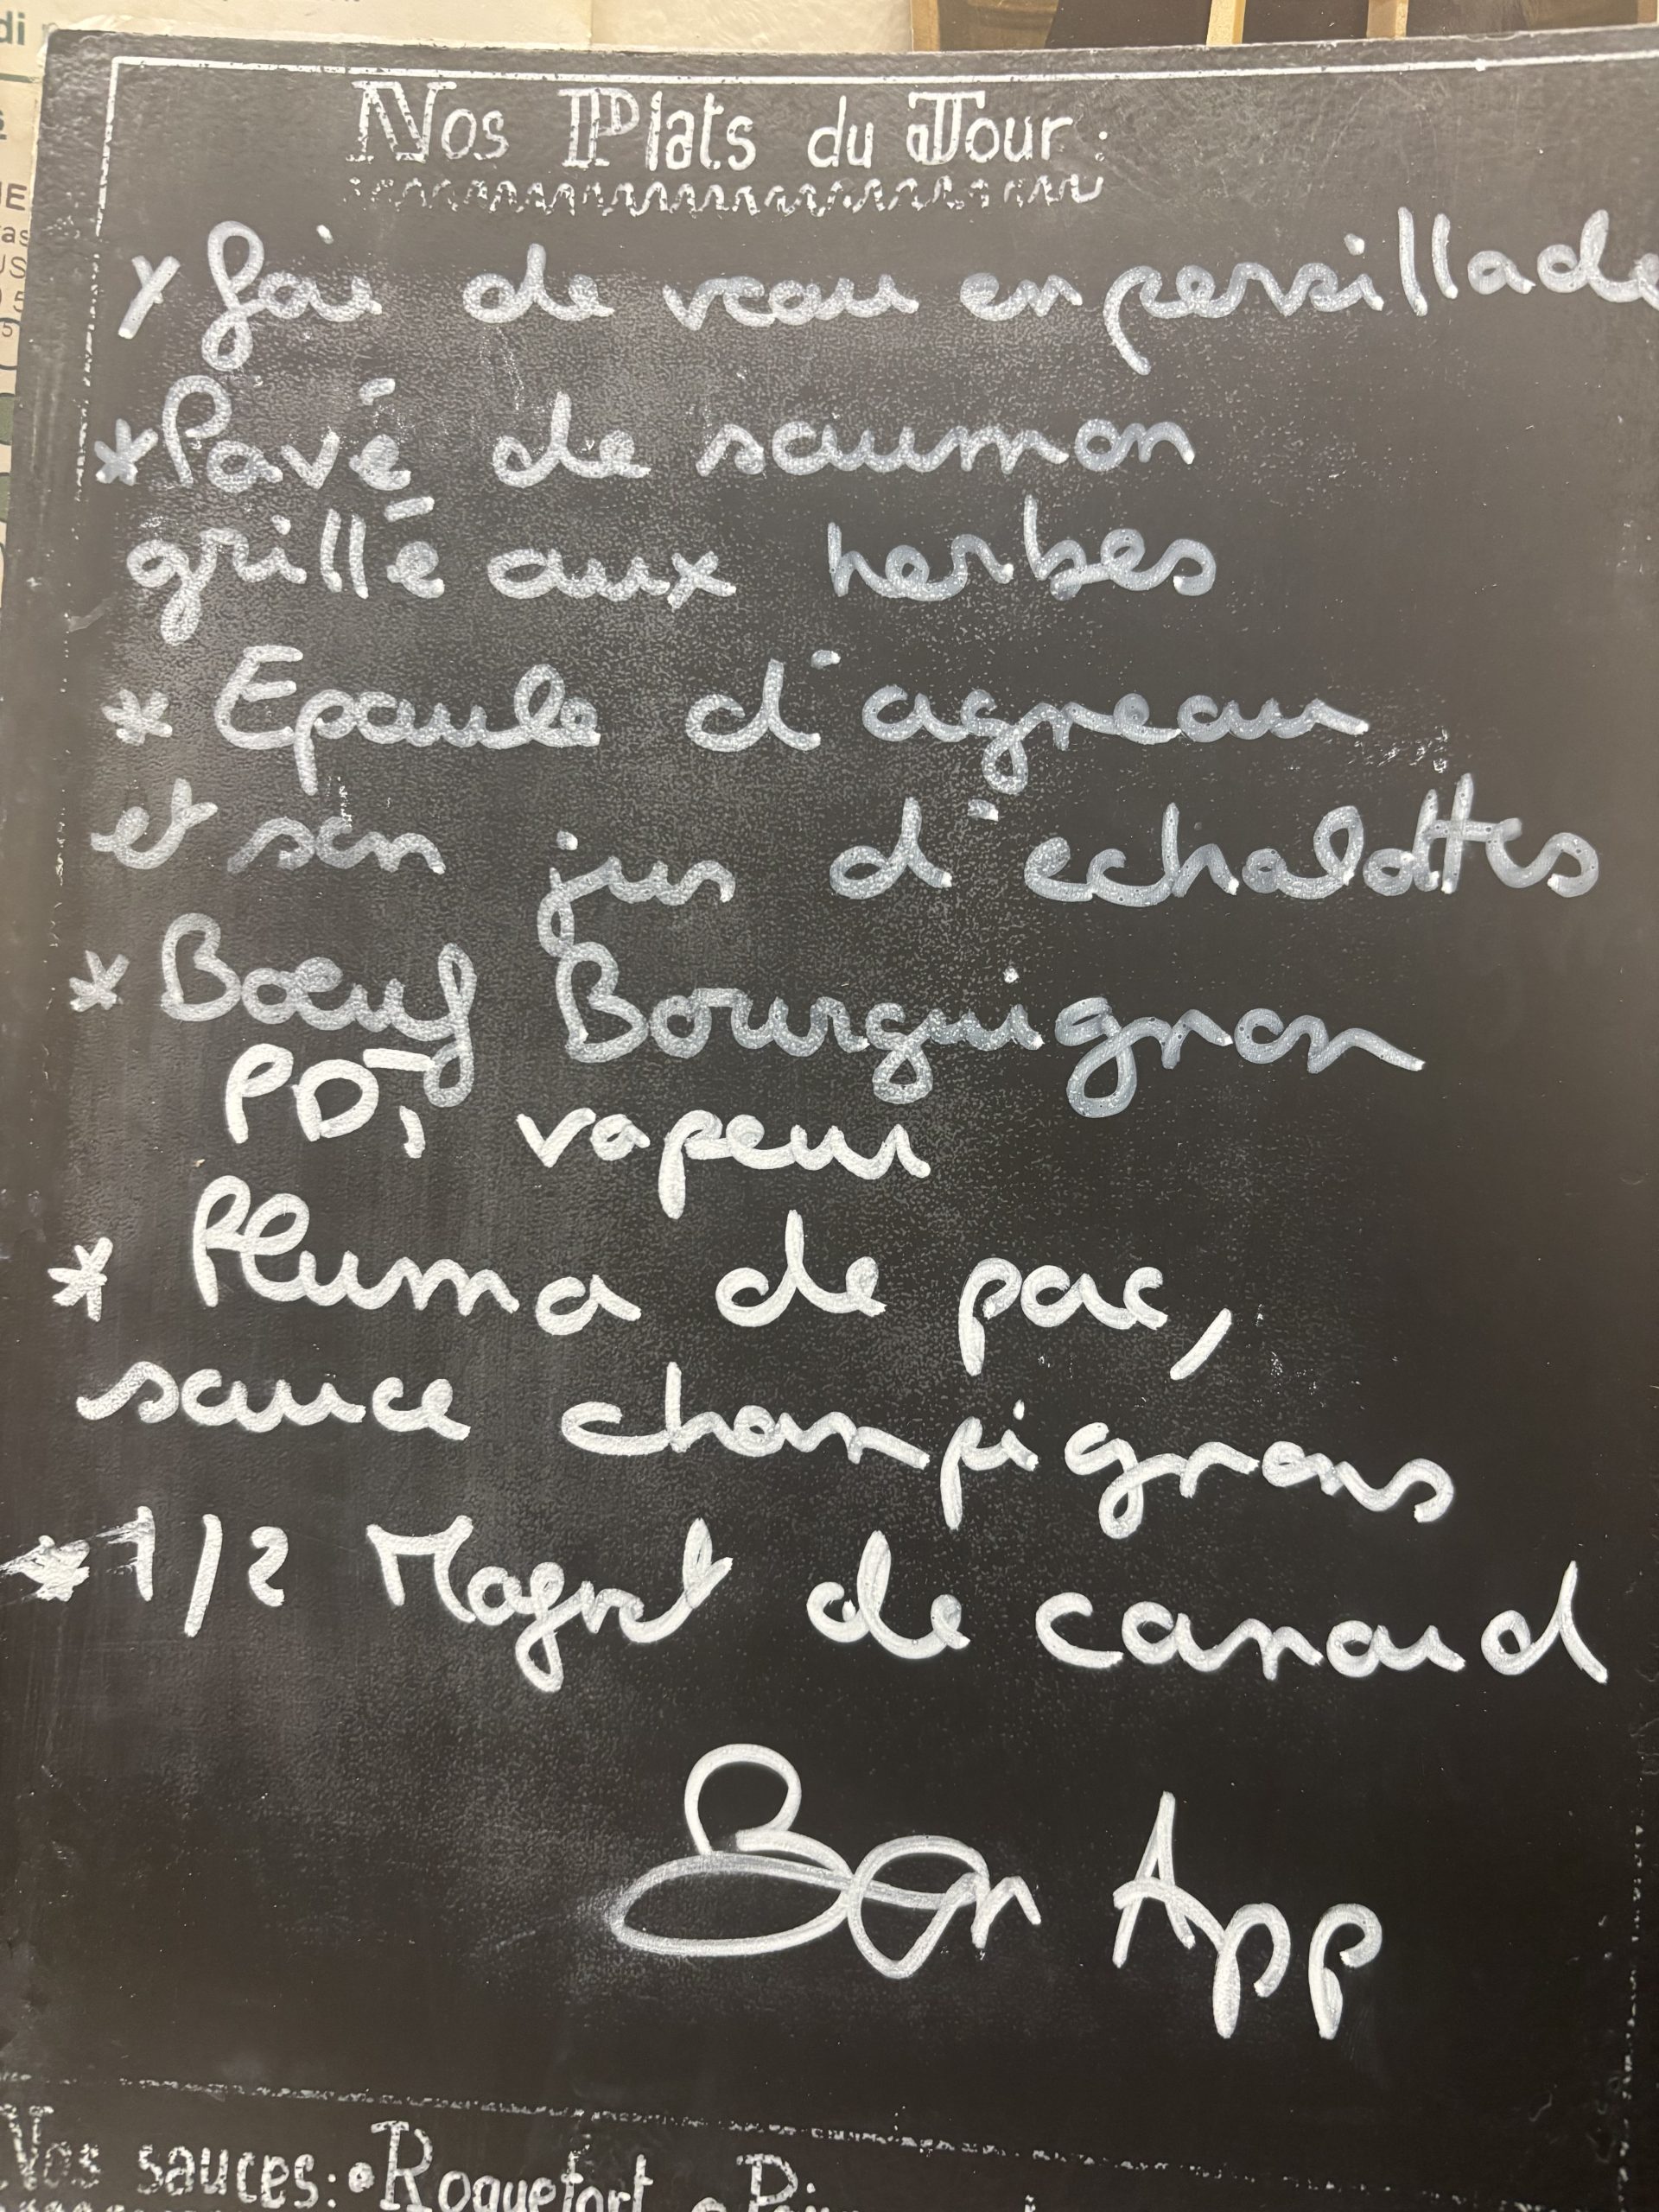 di
Nos Plats du Jour :
* foie de veau en persillade
* Pavé de saumon
grillé aux herbes
* Epaule d'agneau
et son jus d'echalottes
* Bœuf Bourguignon
PDT vapeur
* Pluma de porc,
sauce champignons
* 1/2 Magret de canard
Bon App
Nos sauces: • Roquefort •